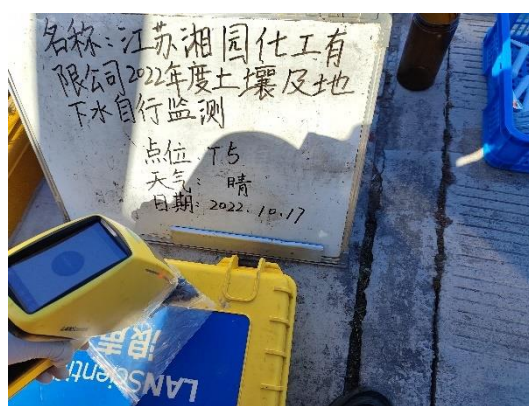 名称:江苏湘园化工有
限公司2022年度土壤及地
下水自行监测
点位 T5
天气: 晴
日期: 2022.10.17
LANScienti
浪声